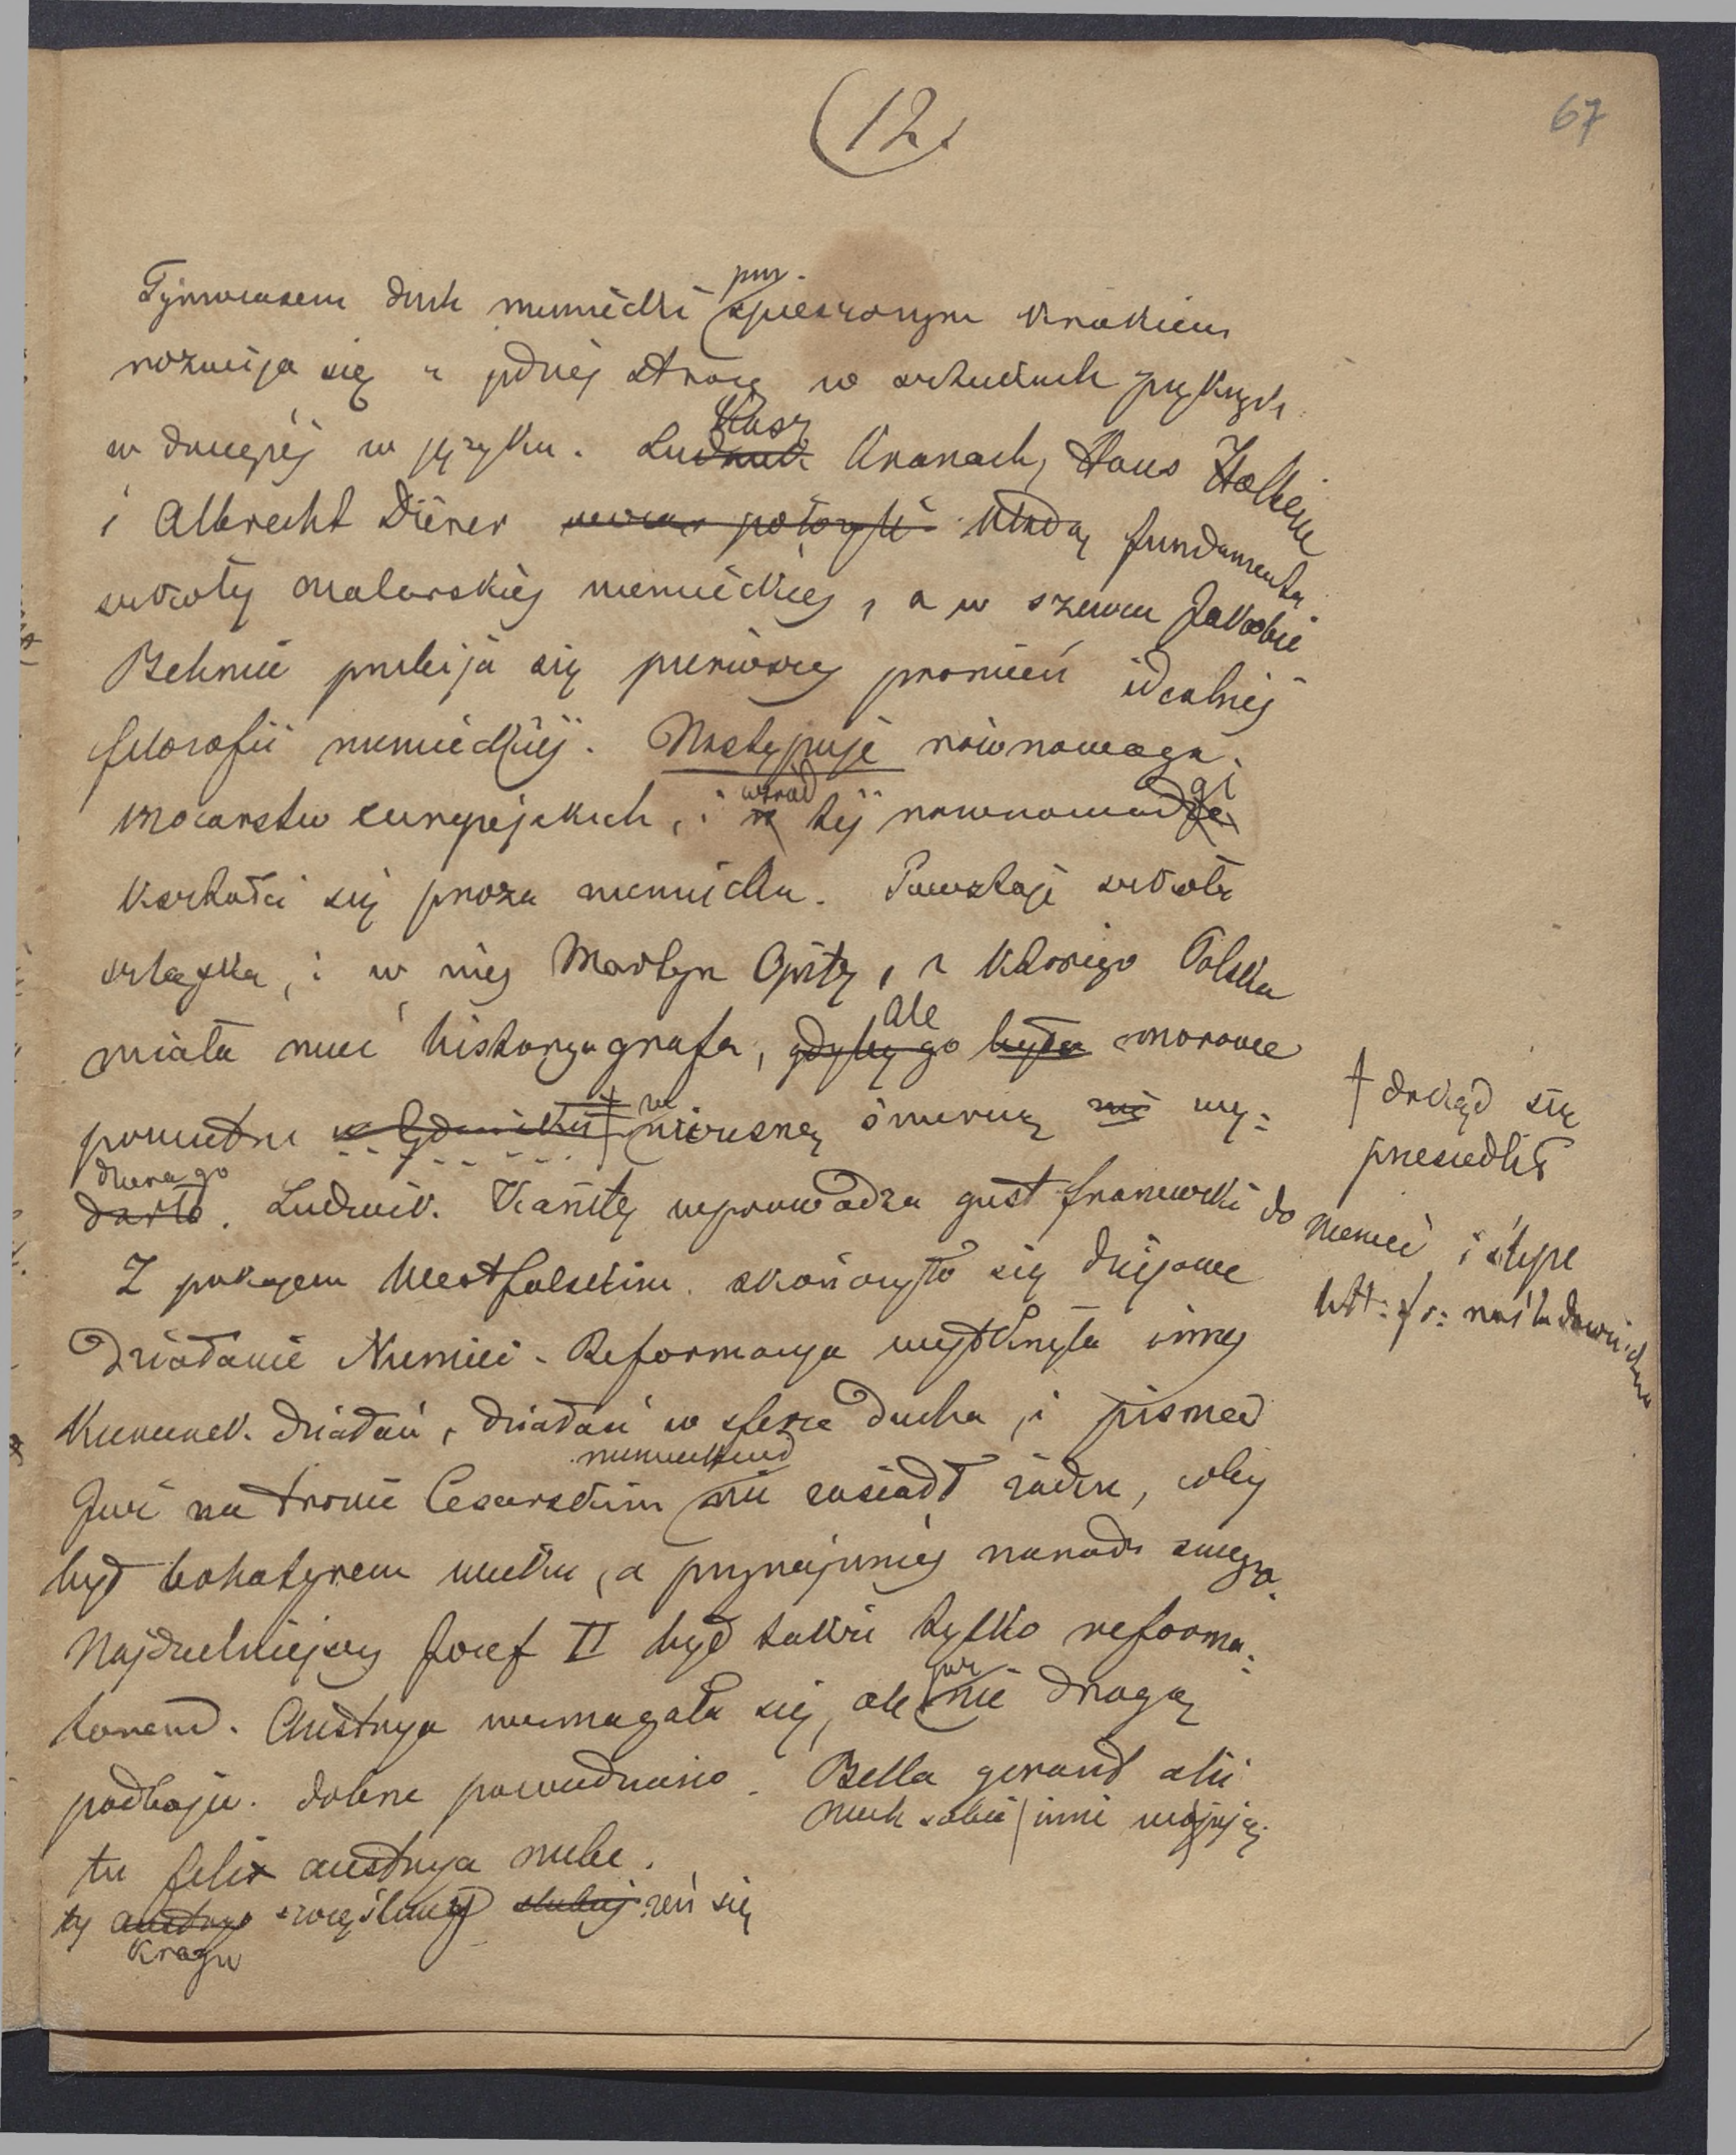 (12)
67
Tymczasem duch niemiecki przyspieszonym krokiem
rozwija się z jednej strony w sztukach pięknych
w drugiej w języku. Łukasz Kranach, Hans Holbein
i Albrecht Dürer kładą fundamenta
szkoły malarskiej niemieckiej, a w szewcu Jakobie
Behmie przebija się pierwszy promień idealnej
filozofii niemieckiej. Następuje równowaga
mocarstw europejskich, i wśród tej równowagi
kształci się proza niemiecka. Powstaje szkoła
szląska, i w niej Martyn Opitz, z którego Polska
miała mieć historyografa, ale morowe
powietrze w Gdańsku † wczesną śmiercią wy-
dziera go. Ludwik Kanitz wprowadza gust francuzki do
Niemiec i sypie
† dokąd się
przesiedlił
Z pokojem Westfalskim skończyło się dziejowe
działanie Niemiec. Reformacya wytknęła inny
kierunek działań, działań w sferze ducha, i pismed
Już na tronie Cesarskim niemieckim nie zasiadł żaden, coby
był bohatyrem wieku, a przynajmniej narodu swego.
Najdzielniejszy Józef II był także tylko reforma-
torem. Austrya wzmagała się, ale już nie drogą
podboju. dobrze powiedziano. Bella gerant alii
niech sobie inni wojują
tu felix austrya nube.
ty austryo szczęśliwy żeń się
kraju